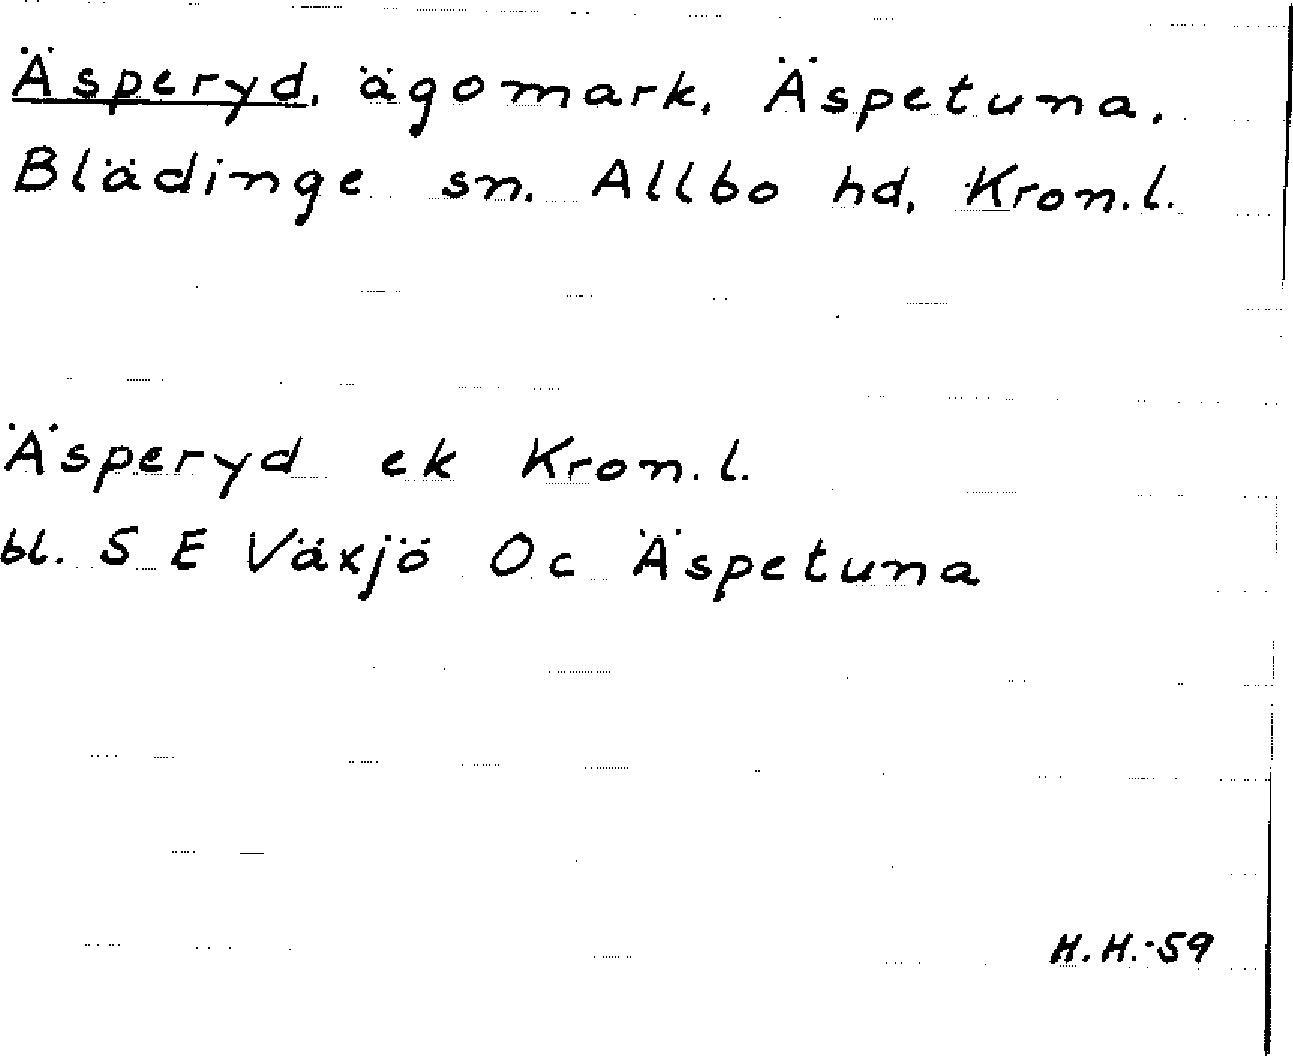 Äsperyd, ägomark, Äspetuna,
Blädinge sn. Allbo hd, Kron.l.
Äsperyd ek Kron.l.
bl. 5 E Växjö Oc Äspetuna
H.H.-59